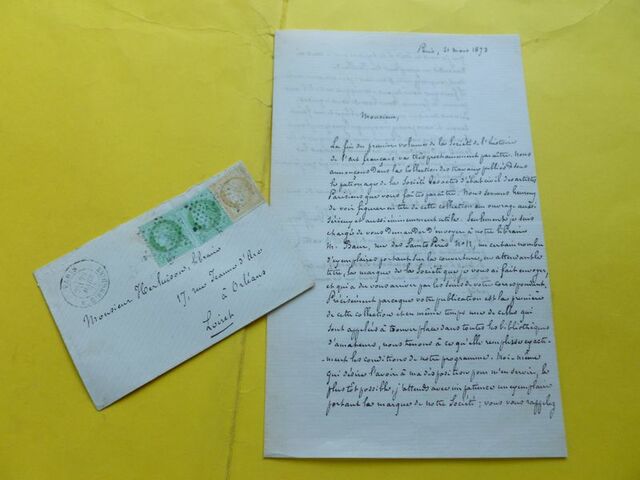 Paris, 31 mars 1873
Monsieur,
La fin du premier volume de la Société de l'histoire
de l'art français va très prochainement paraître. Nous
annonçons dans la collection des travaux publiés sous
le patronage de la Société les actes d'état civil des artistes
Parisiens que vous faites paraître. Nous sommes heureux
de voir figurer en tête de cette collection un ouvrage aussi
sérieux et aussi éminemment utile. Seulement je suis
chargé de vous demander d'envoyer à notre libraire
M. Baur, rue des Saints Pères N° 11, un certain nombre
d'exemplaires portant sur la couverture, en attendant les
titres, la marque de la Société que je vous ai fait envoyer,
et qui a du vous arriver par les soins de votre correspondant.
Précisément parceque votre publication est la première
de cette collection et en même temps une de celles qui
sont appelées à trouver place dans toutes les bibliothèques
d'amateurs, nous tenons à ce qu'elle remplisse exacte-
-ment les conditions de notre programme. Moi-même
qui désire l'avoir à ma disposition pour m'en servir, le
plus tôt possible, j'attends avec impatience un exemplaire
portant la marque de notre Société; vous vous rappelez
Monsieur Herluison, libraire
17, rue Jeanne d'Arc
à Orléans
Loiret